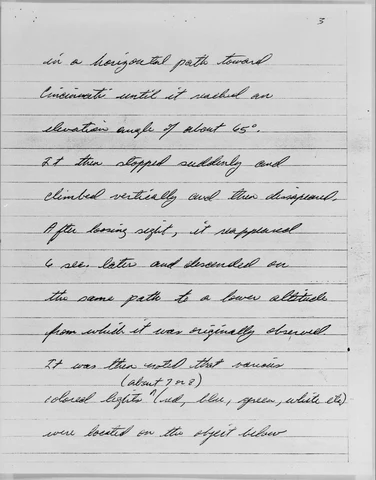 3
in a horizontal path toward
Cincinnati until it reached an
elevation angle of about 65°.
It then stopped suddenly and
climbed vertically and then dissapeared.
After loosing sight, it reappeared
6 sec later and descended on
the same path to a lower altitude
from which it was originally observed.
It was then noted that various
(about 7 or 8)
colored lights ^ (red, blue, green, white etc)
were located on the object below